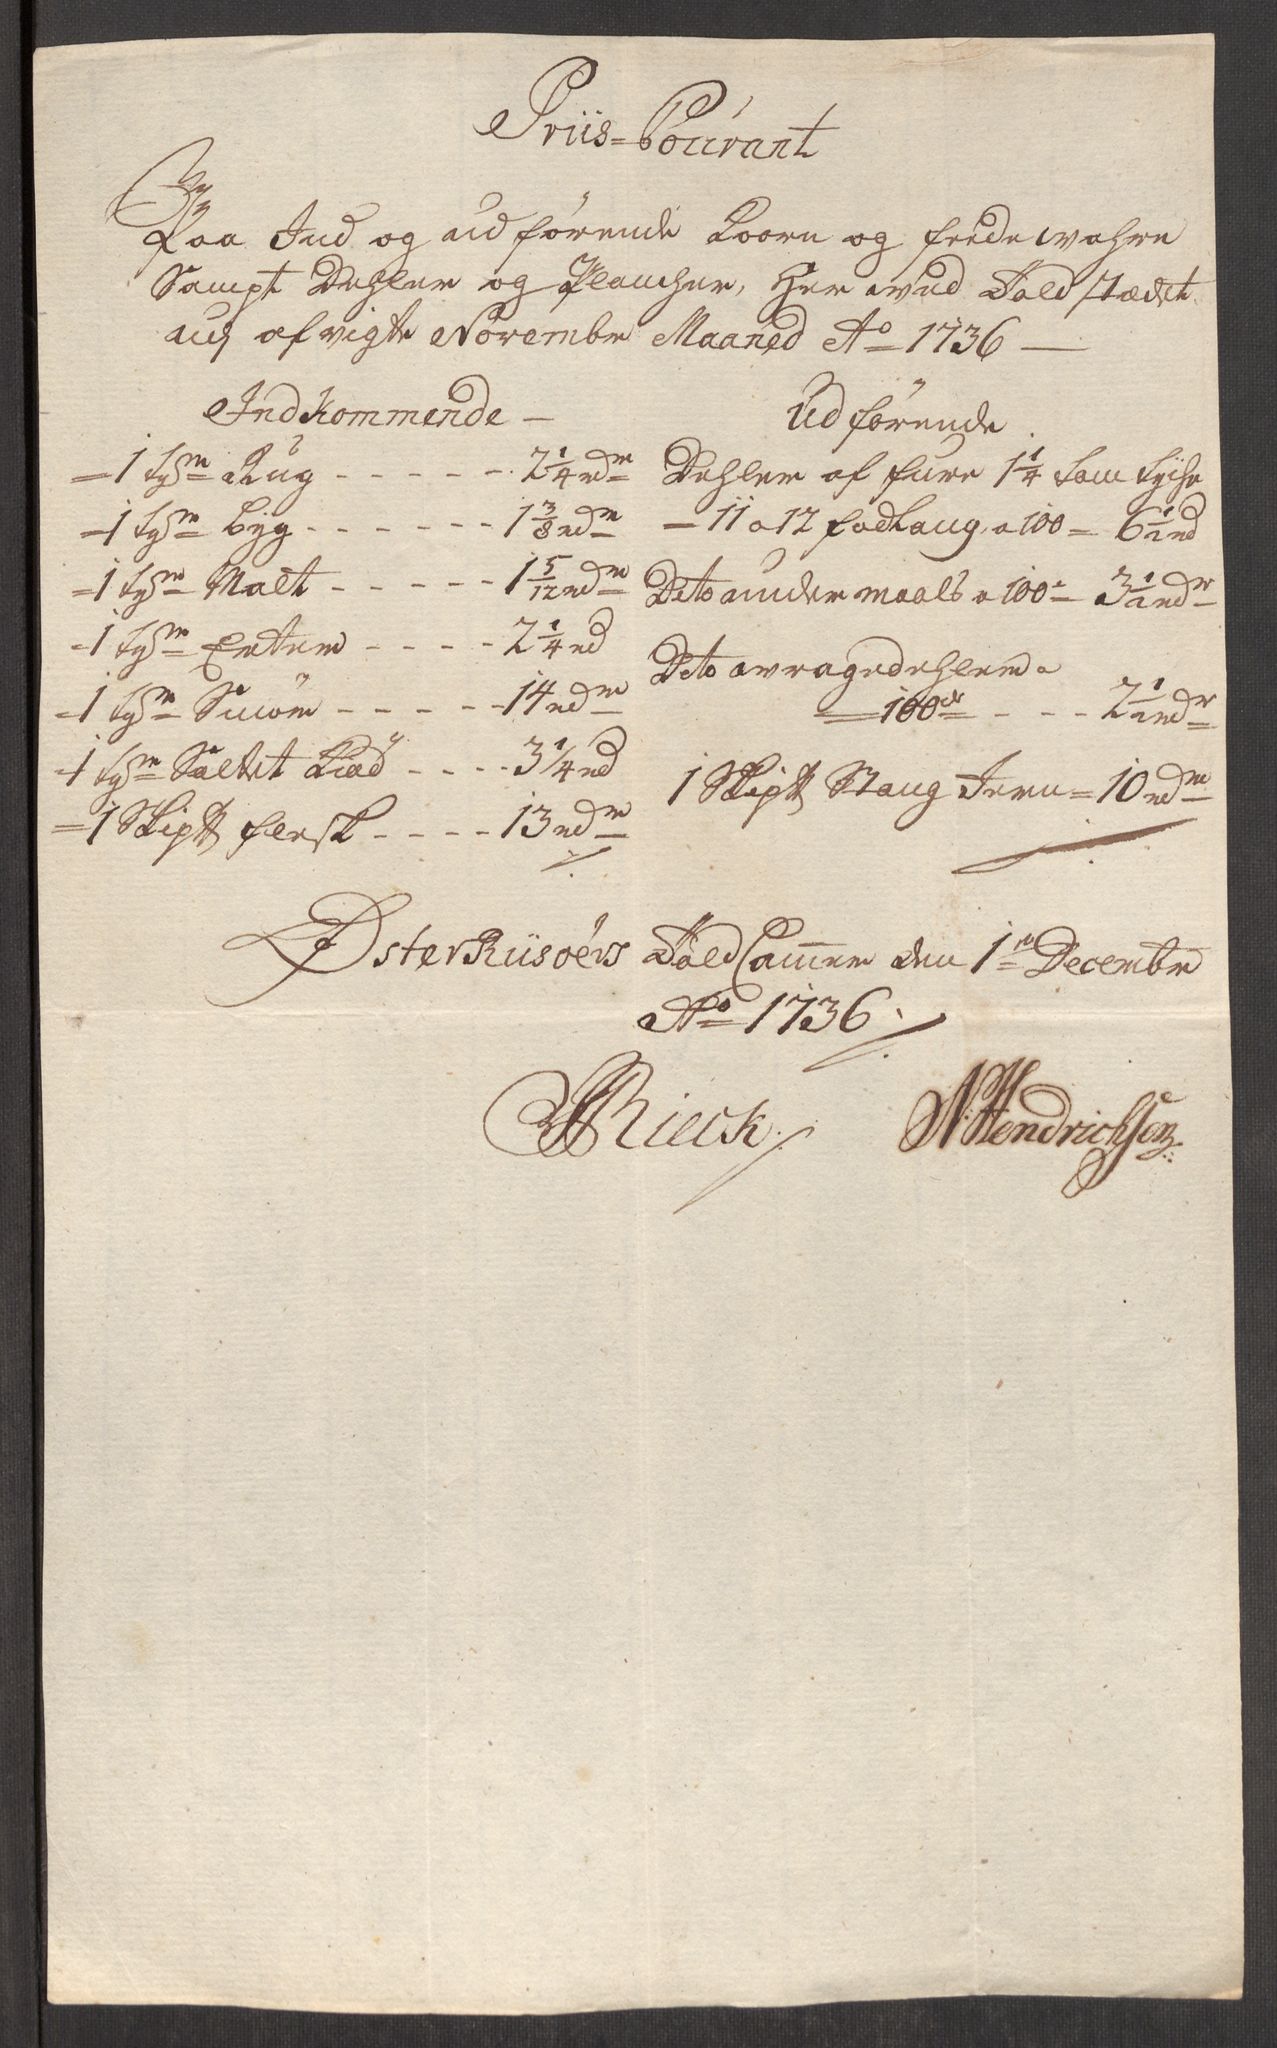 Priis-Courant
Paa Ind og udförende Koorn og fede wahre
Sampt Dehler og Plancher, Her wed Toldstædet
udj afvigte Novembr Maaned Ao 1736 —
Indkommende —
= 1 tdr Rug - - - - - 2 1/4 rdr
= 1 tdr byg - - - - - - 1 3/8 rdr
= 1 tdr Malt - - - - - 1 5/12 rdr
= 1 tdr Erter - - - - 2 1/4 rd
= 1 tdr Smör - - - - - 14 rdr
= 1 tdr Saltet Kiöd - - - - 3 1/4 rd
= 1 Skip℔ flesk - - - - 13 rdr
Udförende
Dehler af fure 1 1/4 tom tyche
— 11 a 12 fod lang, a 100 = 6 1/2 rd
Dito undermaals a 100 = 3 1/2 rdr
Dito wragedehler a
= 100de - - - 2 1/2 rdr
1 Skip℔ Stang Jern = 10 rdr
ØsterRiisöers Told Cammer den 1te Decembr
Ao 1736
Rieck
N: Hendrichsen